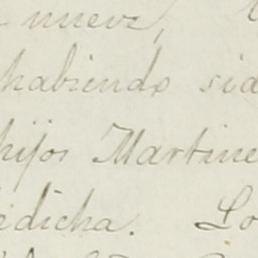 nueve,
habiendo sid
hijos Martine
edicha. Lo